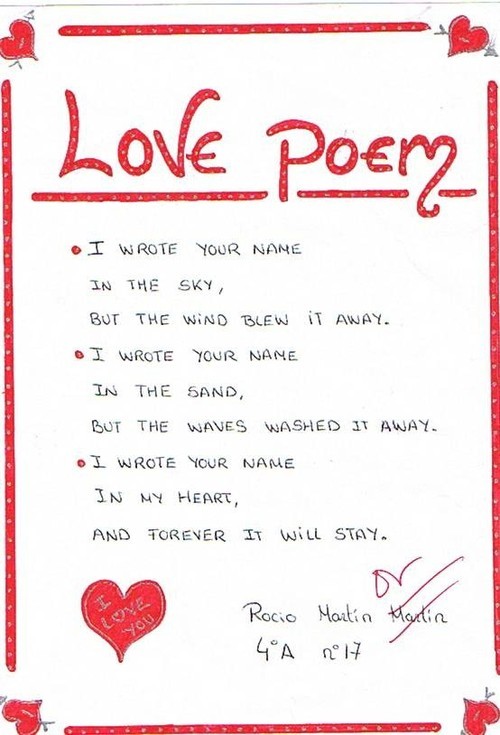 LOVE POEM
I WROTE YOUR NAME
IN THE SKY,
BUT THE WIND BLEW IT AWAY.
I WROTE YOUR NAME
IN THE SAND,
BUT THE WAVES WASHED IT AWAY.
I WROTE YOUR NAME
IN MY HEART,
AND FOREVER IT WILL STAY.
I
LOVE
YOU
Rocio Martin Martin
4ºA nº17